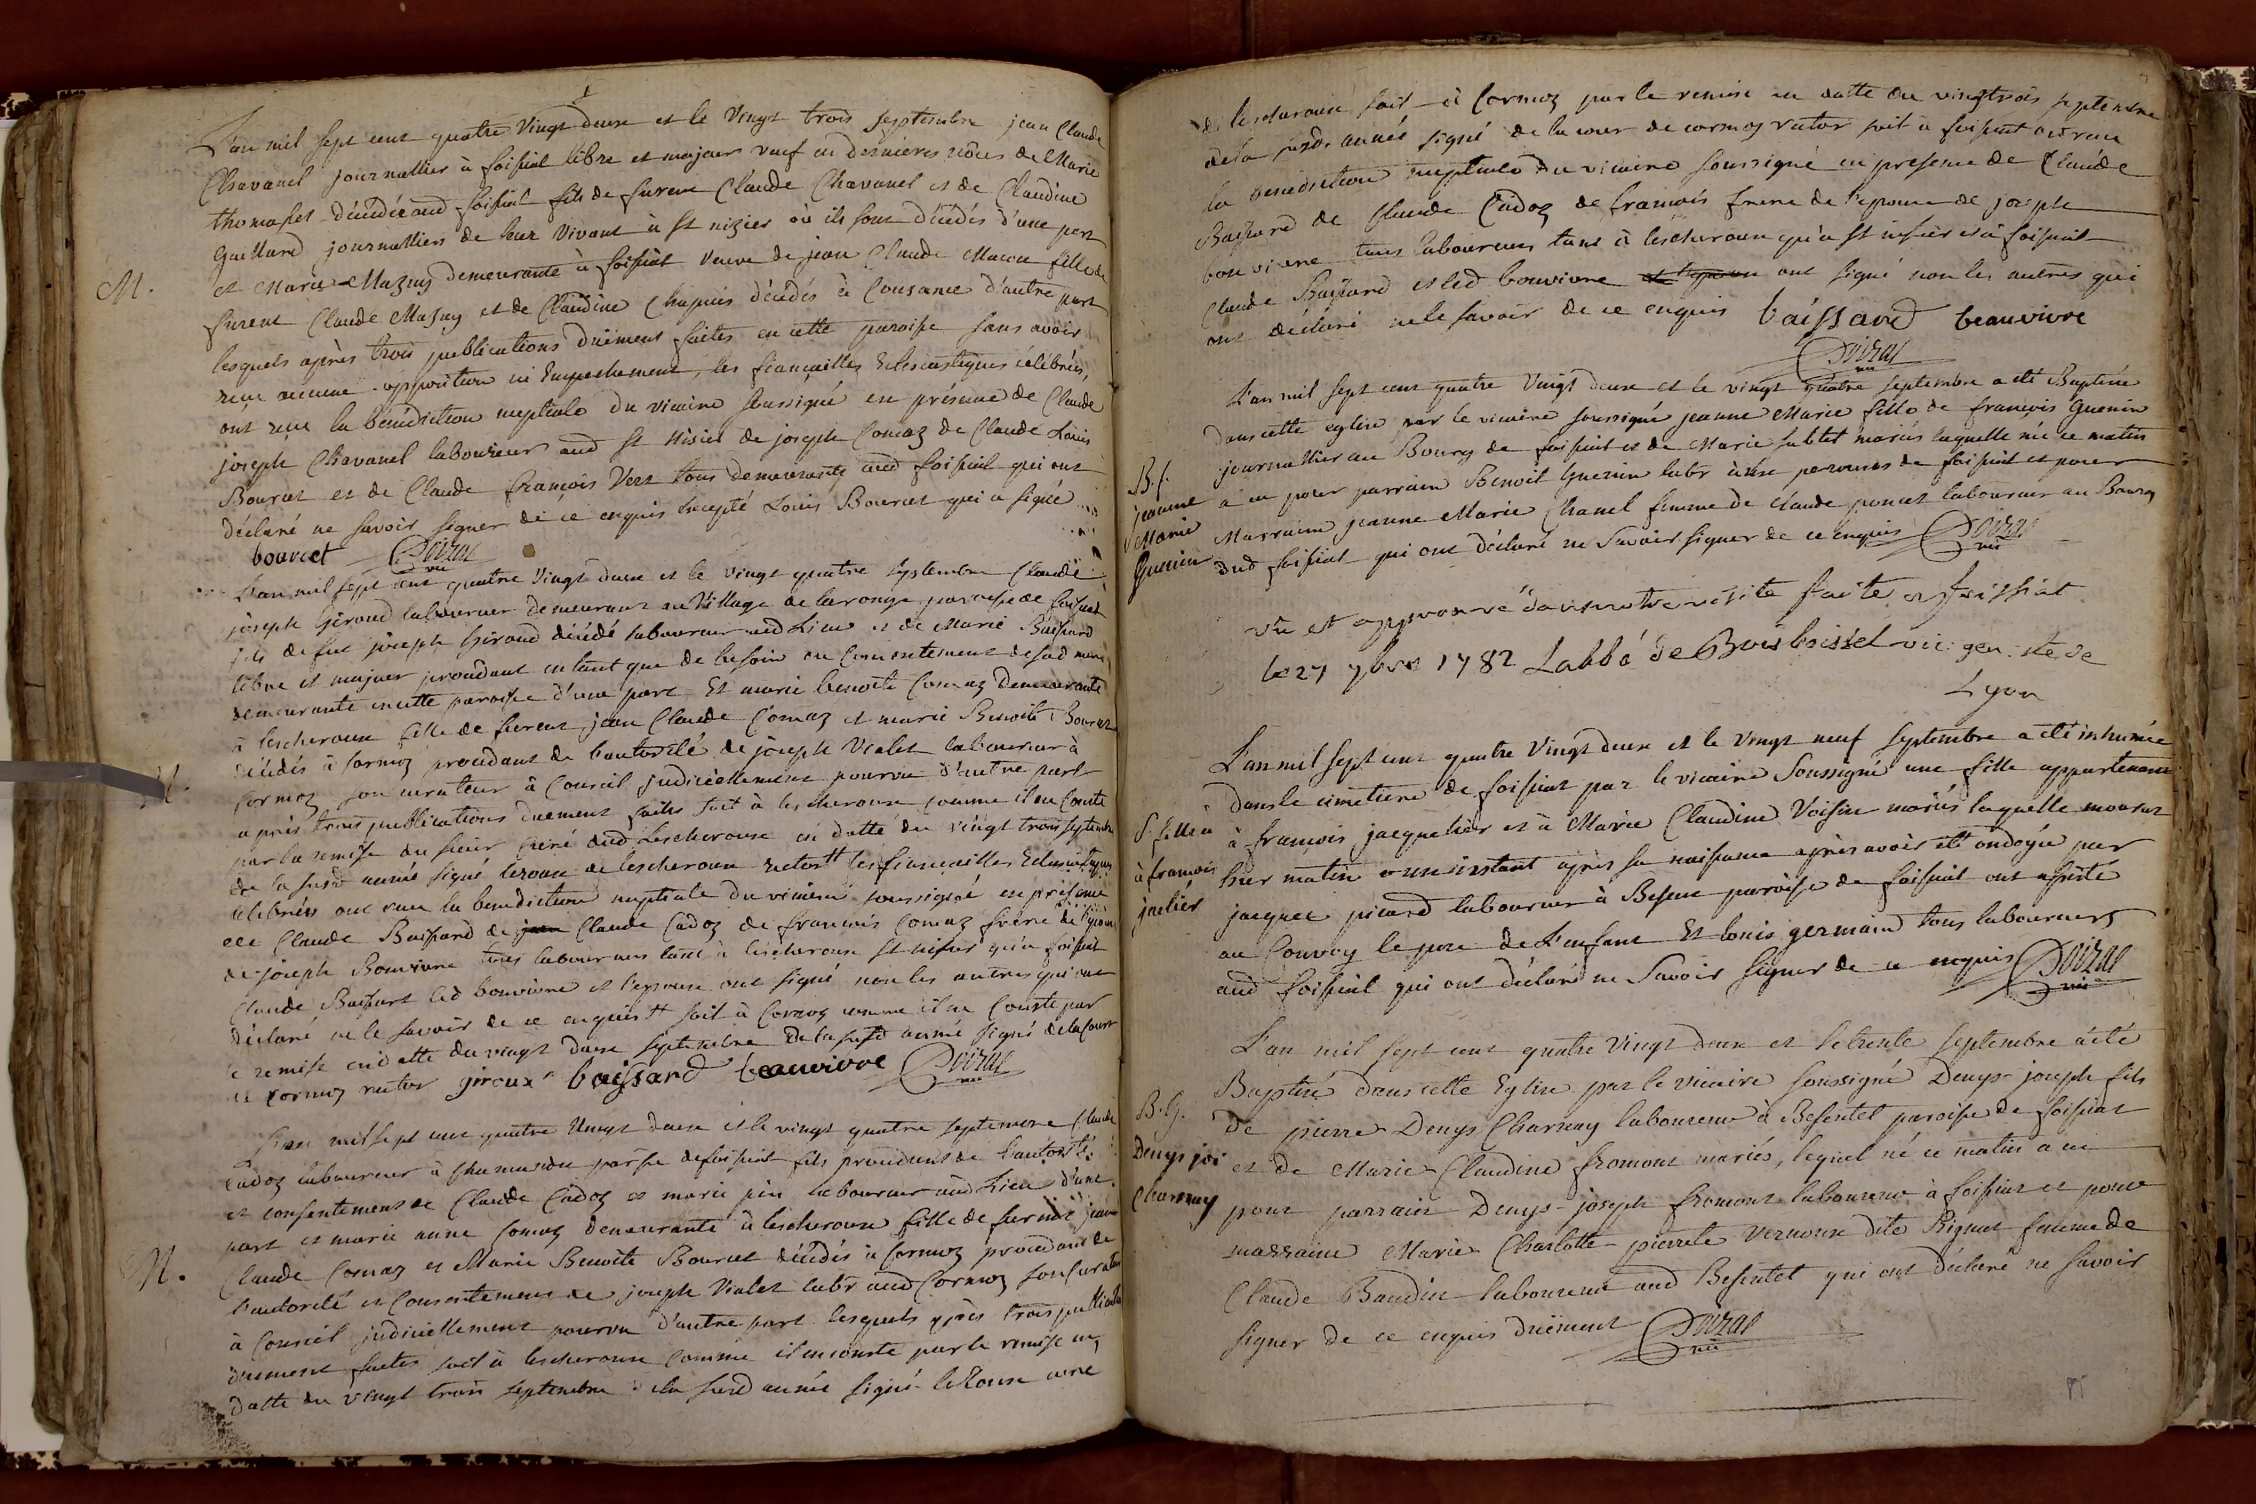 L'an mil sept cent quatre Vingt deux et le Vingt trois septembre jean Claude
Chavanel journallier à foissiat libre et majeur veuf en dernieres nôces de Marie
thomasset décédée aud foissiat fils de furent Claude Chavanel et de Claudine
Gaillard journalliers de leur Vivant à St nizier où ils sont décédés d'une part
M.
et Marie Mazuy demeurante à foissiat veuve de jean Claude Macon fille de
furent Claude Mazuy et de Claudine Chapuis décédés à Cousance d'autre part
lesquels après trois publications duëment faites en cette paroisse sans avoir
reçu aucune opposition ni Empechement, les fiançailles Eclesiastiques célébrées,
ont reçu la bénédiction nuptiale du vicaire soussigné en présence de Claude
joseph Chavanel laboureur aud St Nisier de joseph Comaz de Claude Louis
Bourcet et de Claude françois Vert tous demeurants aud foissiat qui ont
déclaré ne savoir signer de ce enquis Excepté Louis Bourcet qui a signé
bourcet Doizal vic
L'an mil sept cent quatre Vingt deux et le vingt quatre septembre Claude
joseph Giroud laboureur demeurant au Village de laronge paroisse de foissiat
fils de fut joseph Giroud décédé laboureur aud Lieu et de Marie Baissard
libre et majeur procédant en tant que de besoin du Consentement de sad mere
demeurante en cette paroisse d'une part Et marie benoite Comaz demeurante
à lescheroux fille de furent jean Claude Comaz et marie Benoite Bourcet
M.
décédés à Cormoz procédant de l'autorité de joseph Vialet laboureur à
Cormoz son curateur à Conseil judiciellement pourvu d'autre part
après trois publications duement faites soit à lescheroux comme il en Conste
par la remise du sieur Curé dud Lescheroux en datte du vingt trois septembre
de la susd année signé leroux de lescheroux rector tt les fiançailles Eclesiastiques
célébrées ont reçu la benediction nuptiale du vicaire soussigné en présence
de Claude Baissard de Claude Cadoz de françois Comaz frère de l'épouse
de joseph Bonvivre tous laboureurs tant à lescheroux St nisier qu'a foissiat
Claude Baissart led bonvivre et l'epoux ont signé non les autres qui ont
déclaré ne le savoir de ce enquis tt soit à Cormoz comme il en Conste par
la remise en datte du vingt deux septembre de la susd année signé delaCour
de Cormoz rector giroux baissard beauvivre Doizal vic
L'an mil sept cent quatre Vingt deux et le vingt quatre septembre Claude
Cadoz laboureur à parsse de foissiat fils procédant de l'autorité
et consentement de Claude Cadoz et marie laboureur aud Lieu d'une
part et marie anne Comaz demeurante à lescheroux fille de furent jean
M.
Claude Comaz et Marie Benoite Bourcet décédés à Cormoz procédant de
l'autorité et Consentement de joseph Vialet labr aud Cormoz son Curateur
à Conseil judiciellement pourvu d'autre part lesquels après trois publications
duement faites soit à lescheroux Comme il en conste par la remise en
datte du vingt trois septembre de la susd année signé leRoux curé
de lescheroux soit à Cormoz par la remise en datte du vingtrois septembre
de la susd. année signé de la cour de cormoz rector soit à foissiat ont reçu
la benediction nuptiale du vicaire soussigné en presence de Claude
Baissard de Claude Cadoz de francois frere de l'epouse de joseph
bonvivre tous laboureurs tant à lescheroux qu'a St nisier et à foissiat
Claude Baissard et led bonvivre ont signé non les autres qui
ont déclaré ne le savoir de ce enquis baissard beauvivre
Doizal vic
L'an mil sept cent quatre Vingt deux et le vingt quatre septembre a été Baptisée
dans cette eglise par le vicaire soussigné jeanne Marie fille de françois Guenin
journallier au Bourg de foissiat et de Marie sublet mariés laquelle née ce matin
B. f.
jeanne
Marie
Guenin
a eu pour parrain Benoit Guenin labr paroisse de foissiat et pour
Marraine jeanne Marie Chanel femme de Claude poncet laboureur au Bourg
dud foissiat qui ont déclaré ne Savoir signer de ce enquis Doizal vic
vu et approuvé dans notre visite faite a foissiat
le 27 7bre 1782 Labbé de Boisboissel vic. gen. de
Lyon
L'an mil sept cent quatre Vingt deux et le vingt neuf septembre a été inhumée
dans le cimetiere de foissiat par le vicaire soussigné une fille appartenant
S. fille a
à francois
jaclier
à francois jacquelier et à Marie Claudine Voisin mariés laquelle mourut
hier matin un instant après sa naissance après avoir été ondoyée par
jacques picard laboureur à Besene parroisse de foissiat ont assisté
au Convoy le pere de L'enfant Et louis germain tous laboureurs
aud foissiat qui ont déclaré ne Savoir Signer de ce enquis Doizal vic
L'an mil sept cent quatre Vingt deux et le trente septembre a été
Baptisé dans cette Eglise par le vicaire soussigné Denys joseph fils
B. G.
Denys jos
Charnay
de pierre Denys Charnay laboureur à Besentet paroisse de foissiat
et de Marie Claudine fromont mariés, lequel né ce matin a eu
pour parrain Denys-joseph fromont laboureur à foissiat et pour
marraine Marie Charlotte pierrete Vernoux dite Rignet femme de
Claude Baudin laboureur aud Besentet qui ont déclaré ne savoir
signer de ce enquis duëment Doizal vic